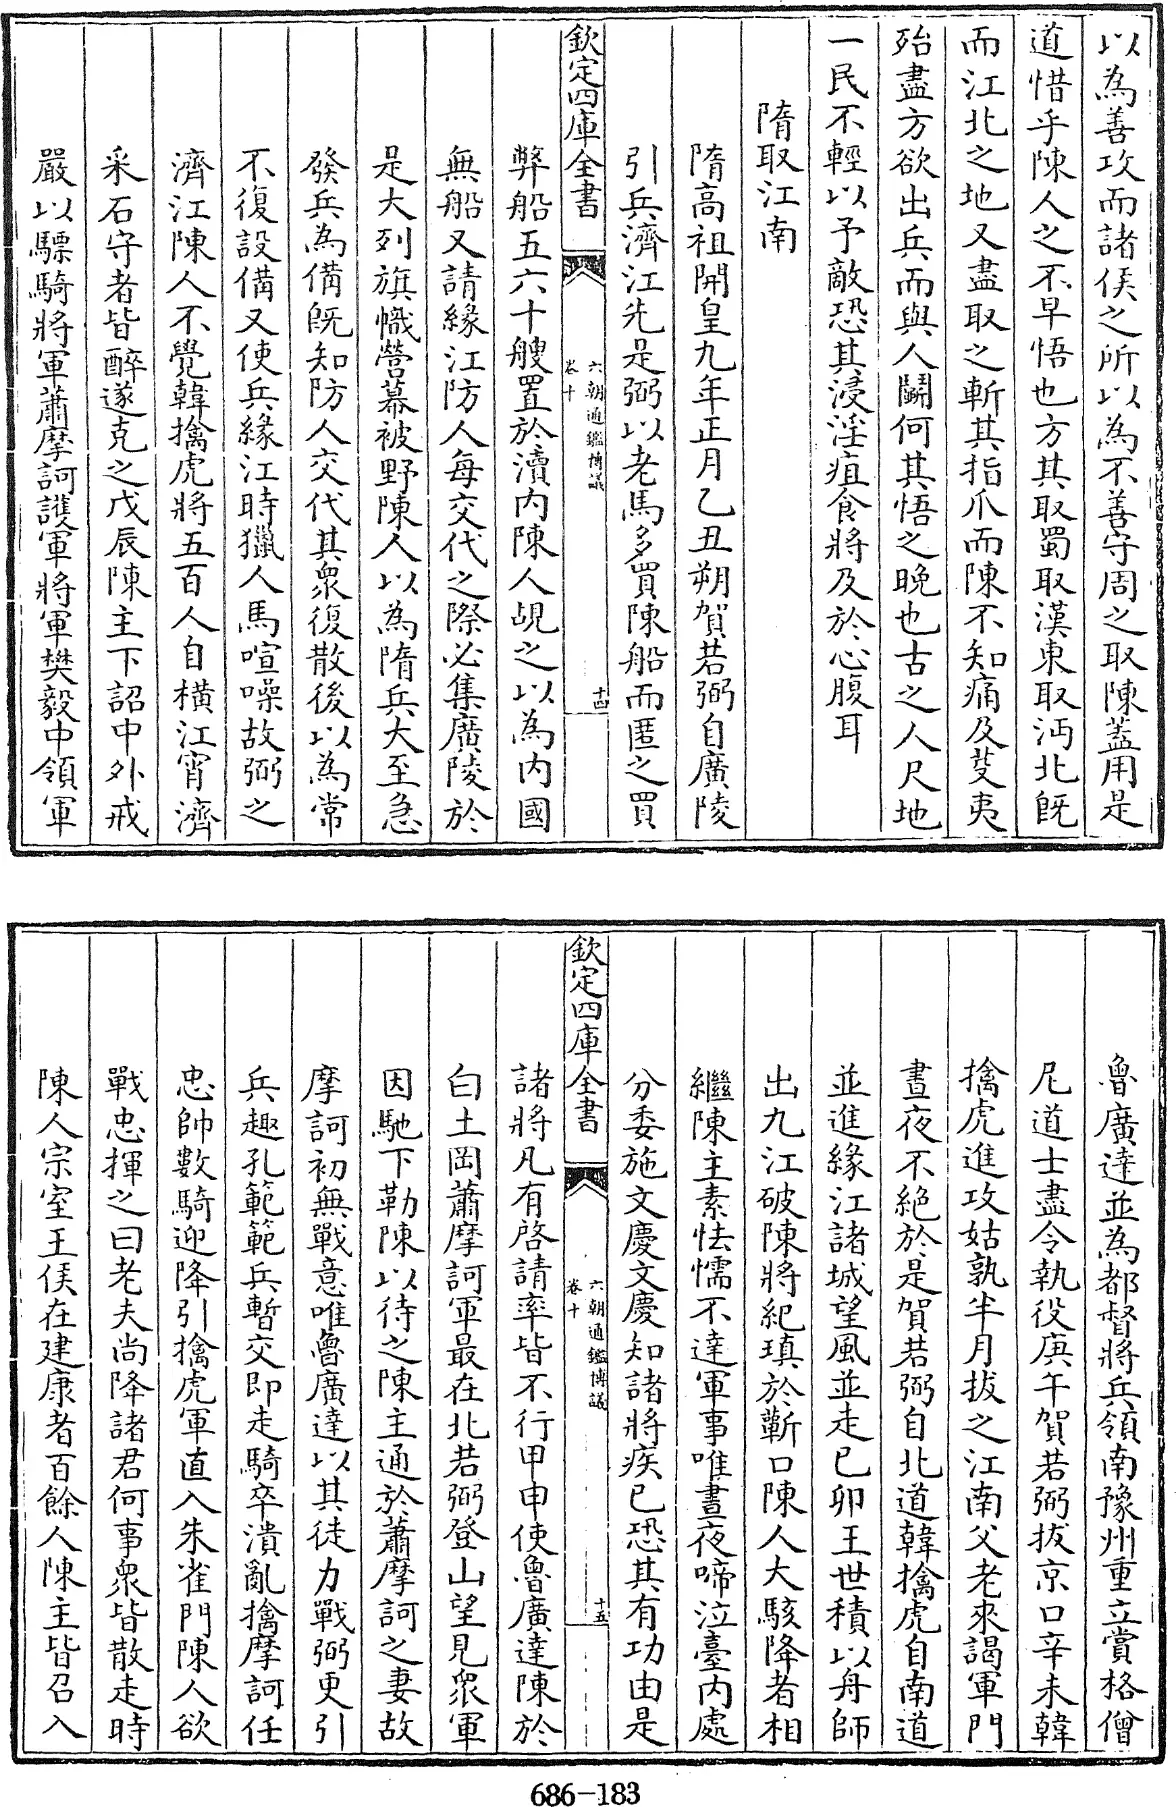 以為善攻而諸侯之所以為不善守周之取陳蓋用是
道惜乎陳人之不早悟也方其取蜀取漢東取沔北旣
而江北之地又盡取之斬其指爪而陳不知痛及芟夷
殆盡方欲出兵而與人鬭何其悟之晚也古之人尺地
一民不輕以予敵恐其浸淫疽食將及於心腹耳
隋取江南
隋高祖開皇九年正月乙丑朔賀若弼自廣陵
引兵濟江先是弼以老馬多買陳船而匿之買
欽定四庫全書
六朝通鑑博議
卷十
十四
弊船五六十艘置於瀆内陳人覘之以為内國
無船又請緣江防人每交代之際必集廣陵於
是大列旗幟營幕被野陳人以為隋兵大至急
發兵為備旣知防人交代其衆復散後以為常
不復設備又使兵緣江時獵人馬喧噪故弼之
濟江陳人不覺韓擒虎將五百人自橫江宵濟
采石守者皆醉遂克之戊辰陳主下詔中外戒
嚴以驃騎將軍蕭摩訶護軍將軍樊毅中領軍
魯廣達並為都督將兵領南豫州重立賞格僧
尼道士盡令執役庚午賀若弼拔京口辛未韓
擒虎進攻姑孰半月拔之江南父老來謁軍門
晝夜不絕於是賀若弼自北道韓擒虎自南道
並進緣江諸城望風並走已卯王世積以舟師
出九江破陳將紀瑱於蘄口陳人大駭降者相
繼陳主素怯懦不達軍事唯晝夜啼泣臺内處
分委施文慶文慶知諸將疾已恐其有功由是
欽定四庫全書
六朝通鑑博議
卷十
十五
諸將凡有啓請率皆不行甲申使魯廣達陳於
白土岡蕭摩訶軍最在北若弼登山望見衆軍
因馳下勒陳以待之陳主通於蕭摩訶之妻故
摩訶初無戰意唯魯廣達以其徒力戰弼更引
兵趣孔範範兵暫交即走騎卒潰亂擒摩訶任
忠帥數騎迎降引擒虎軍直入朱雀門陳人欲
戰忠揮之曰老夫尚降諸君何事衆皆散走時
陳人宗室王侯在建康者百餘人陳主皆召入
686-183